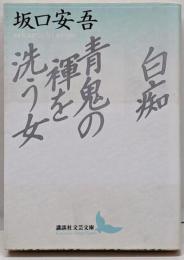 坂口安吾
白痴
青鬼の
褌を
洗う女
講談社文芸文庫